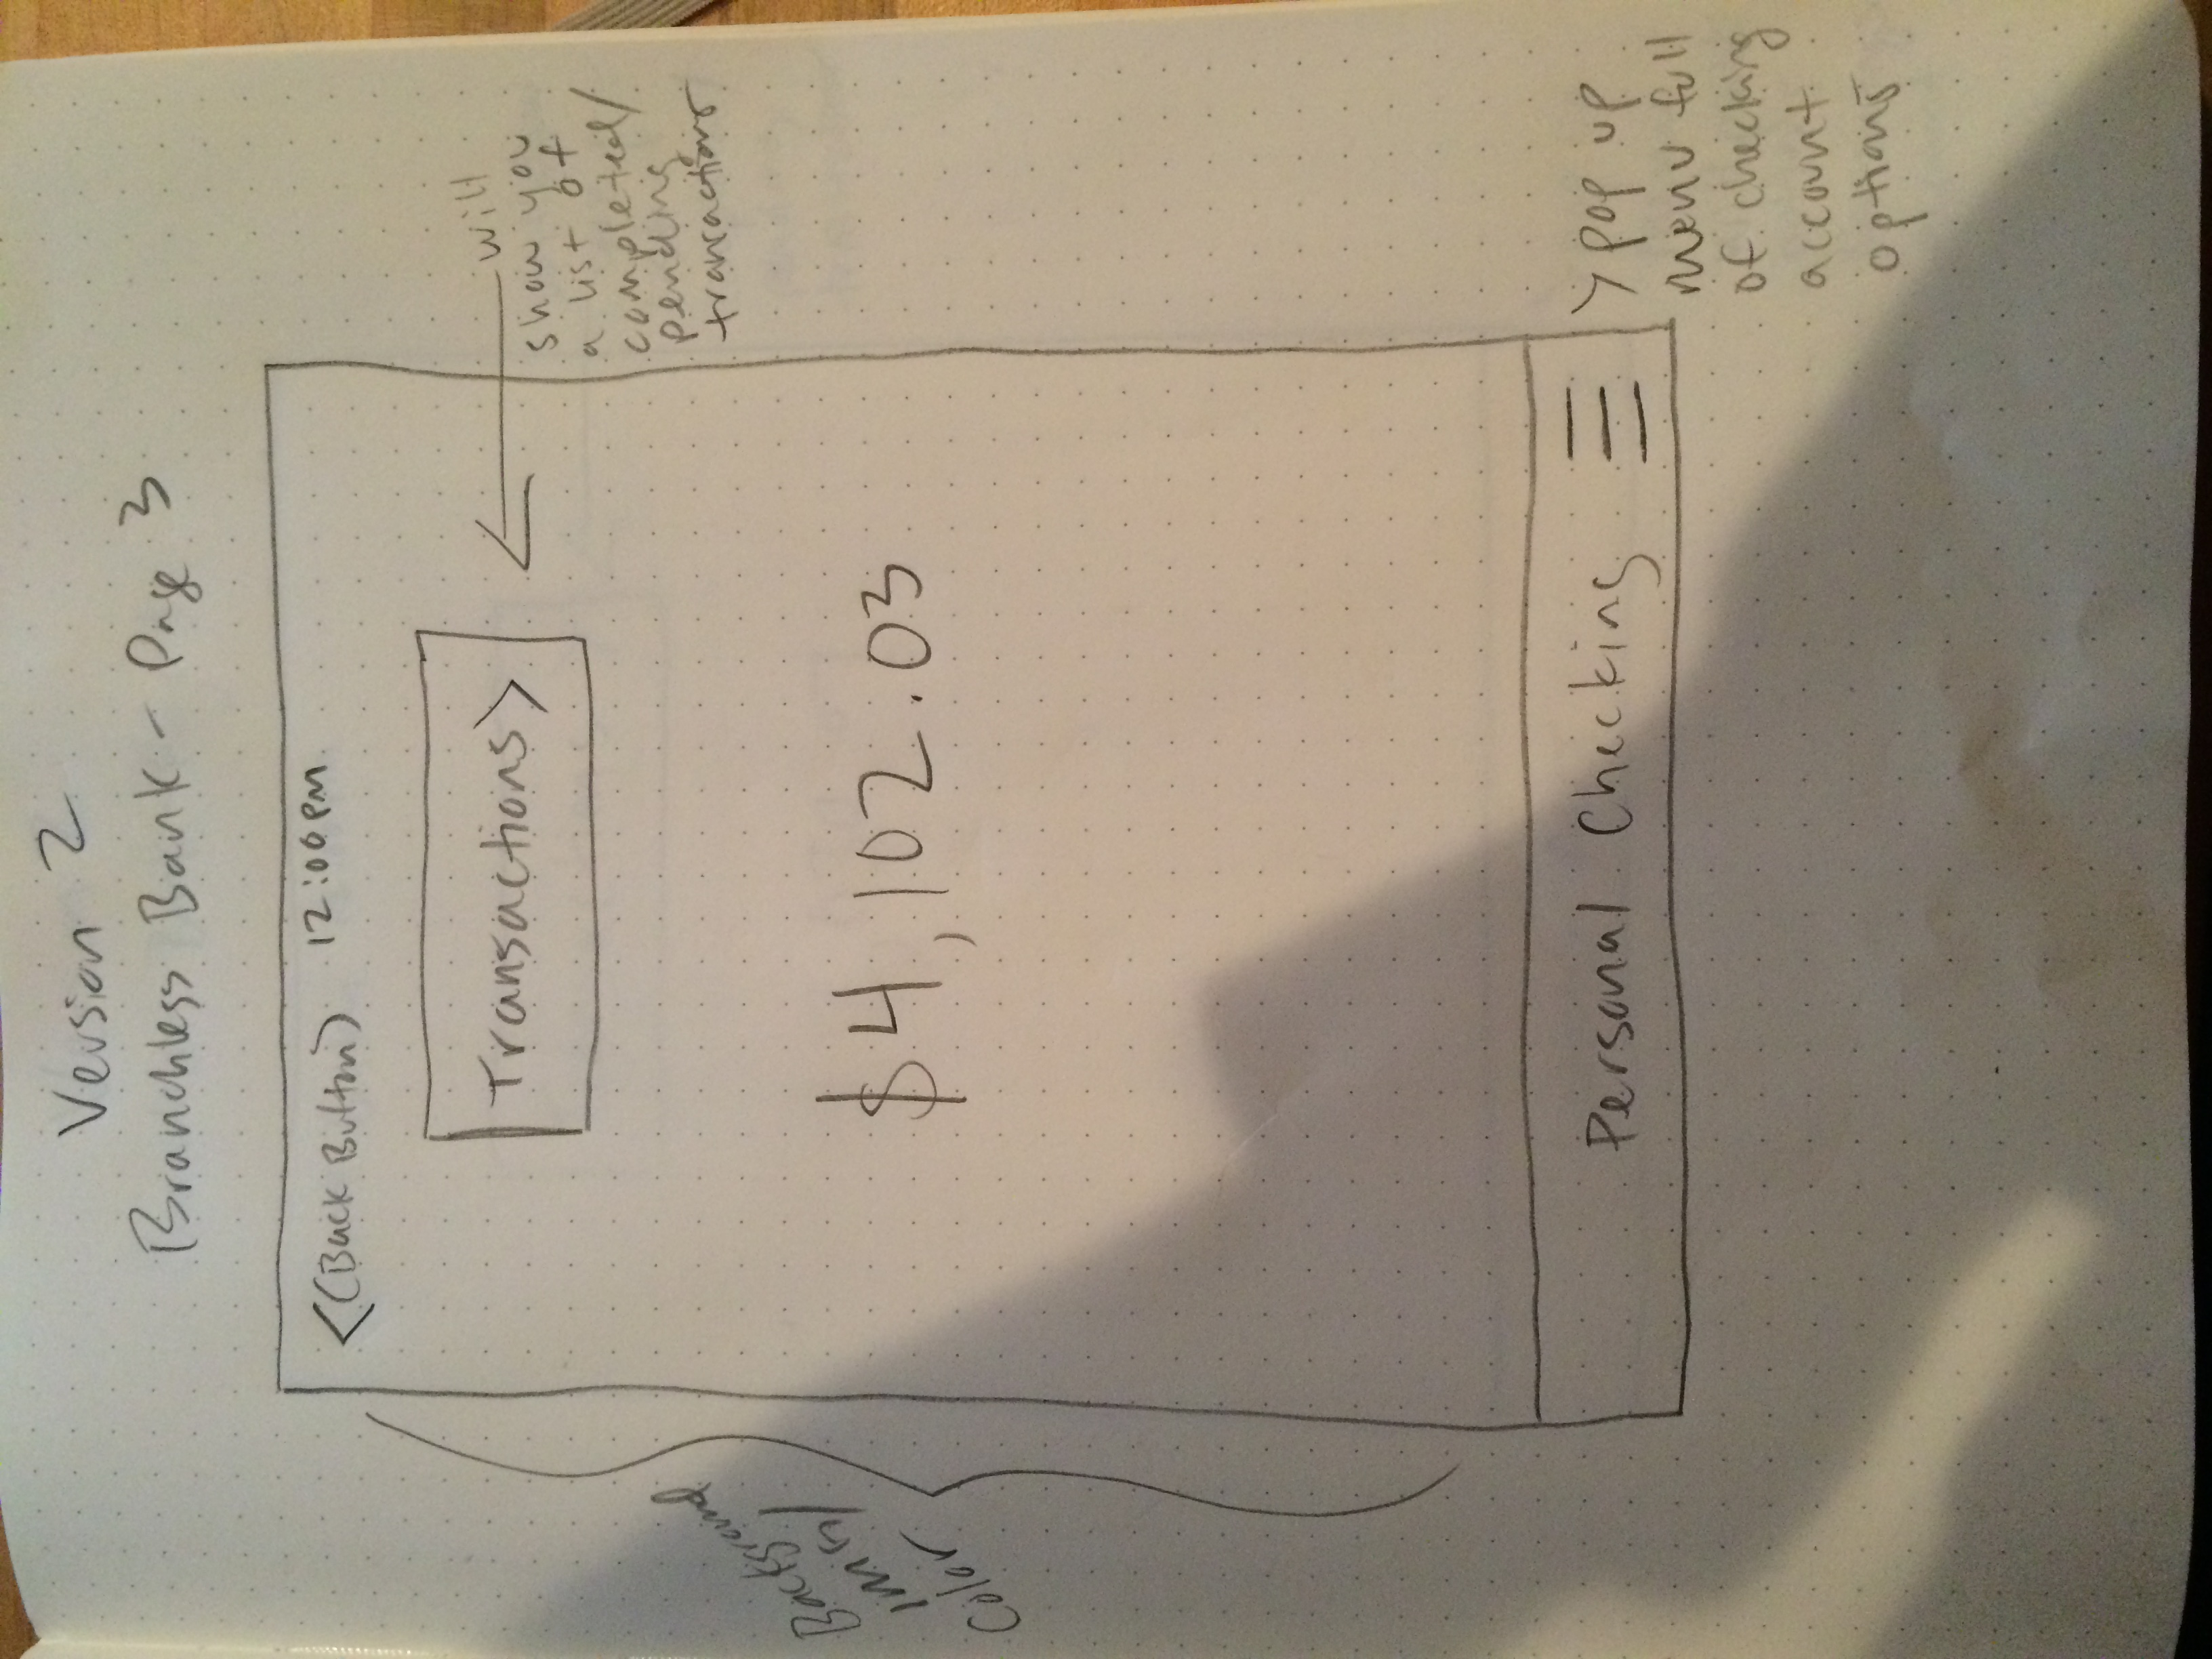 Version 2
Branchless Bank - Page 3
<(Back Button) 12:00PM
Transactions>
will
show you
a list of
completed/
pending
transactions
Background
Color
$4,102.03
Personal Checking
>pop up
menu full
of checking
account
options